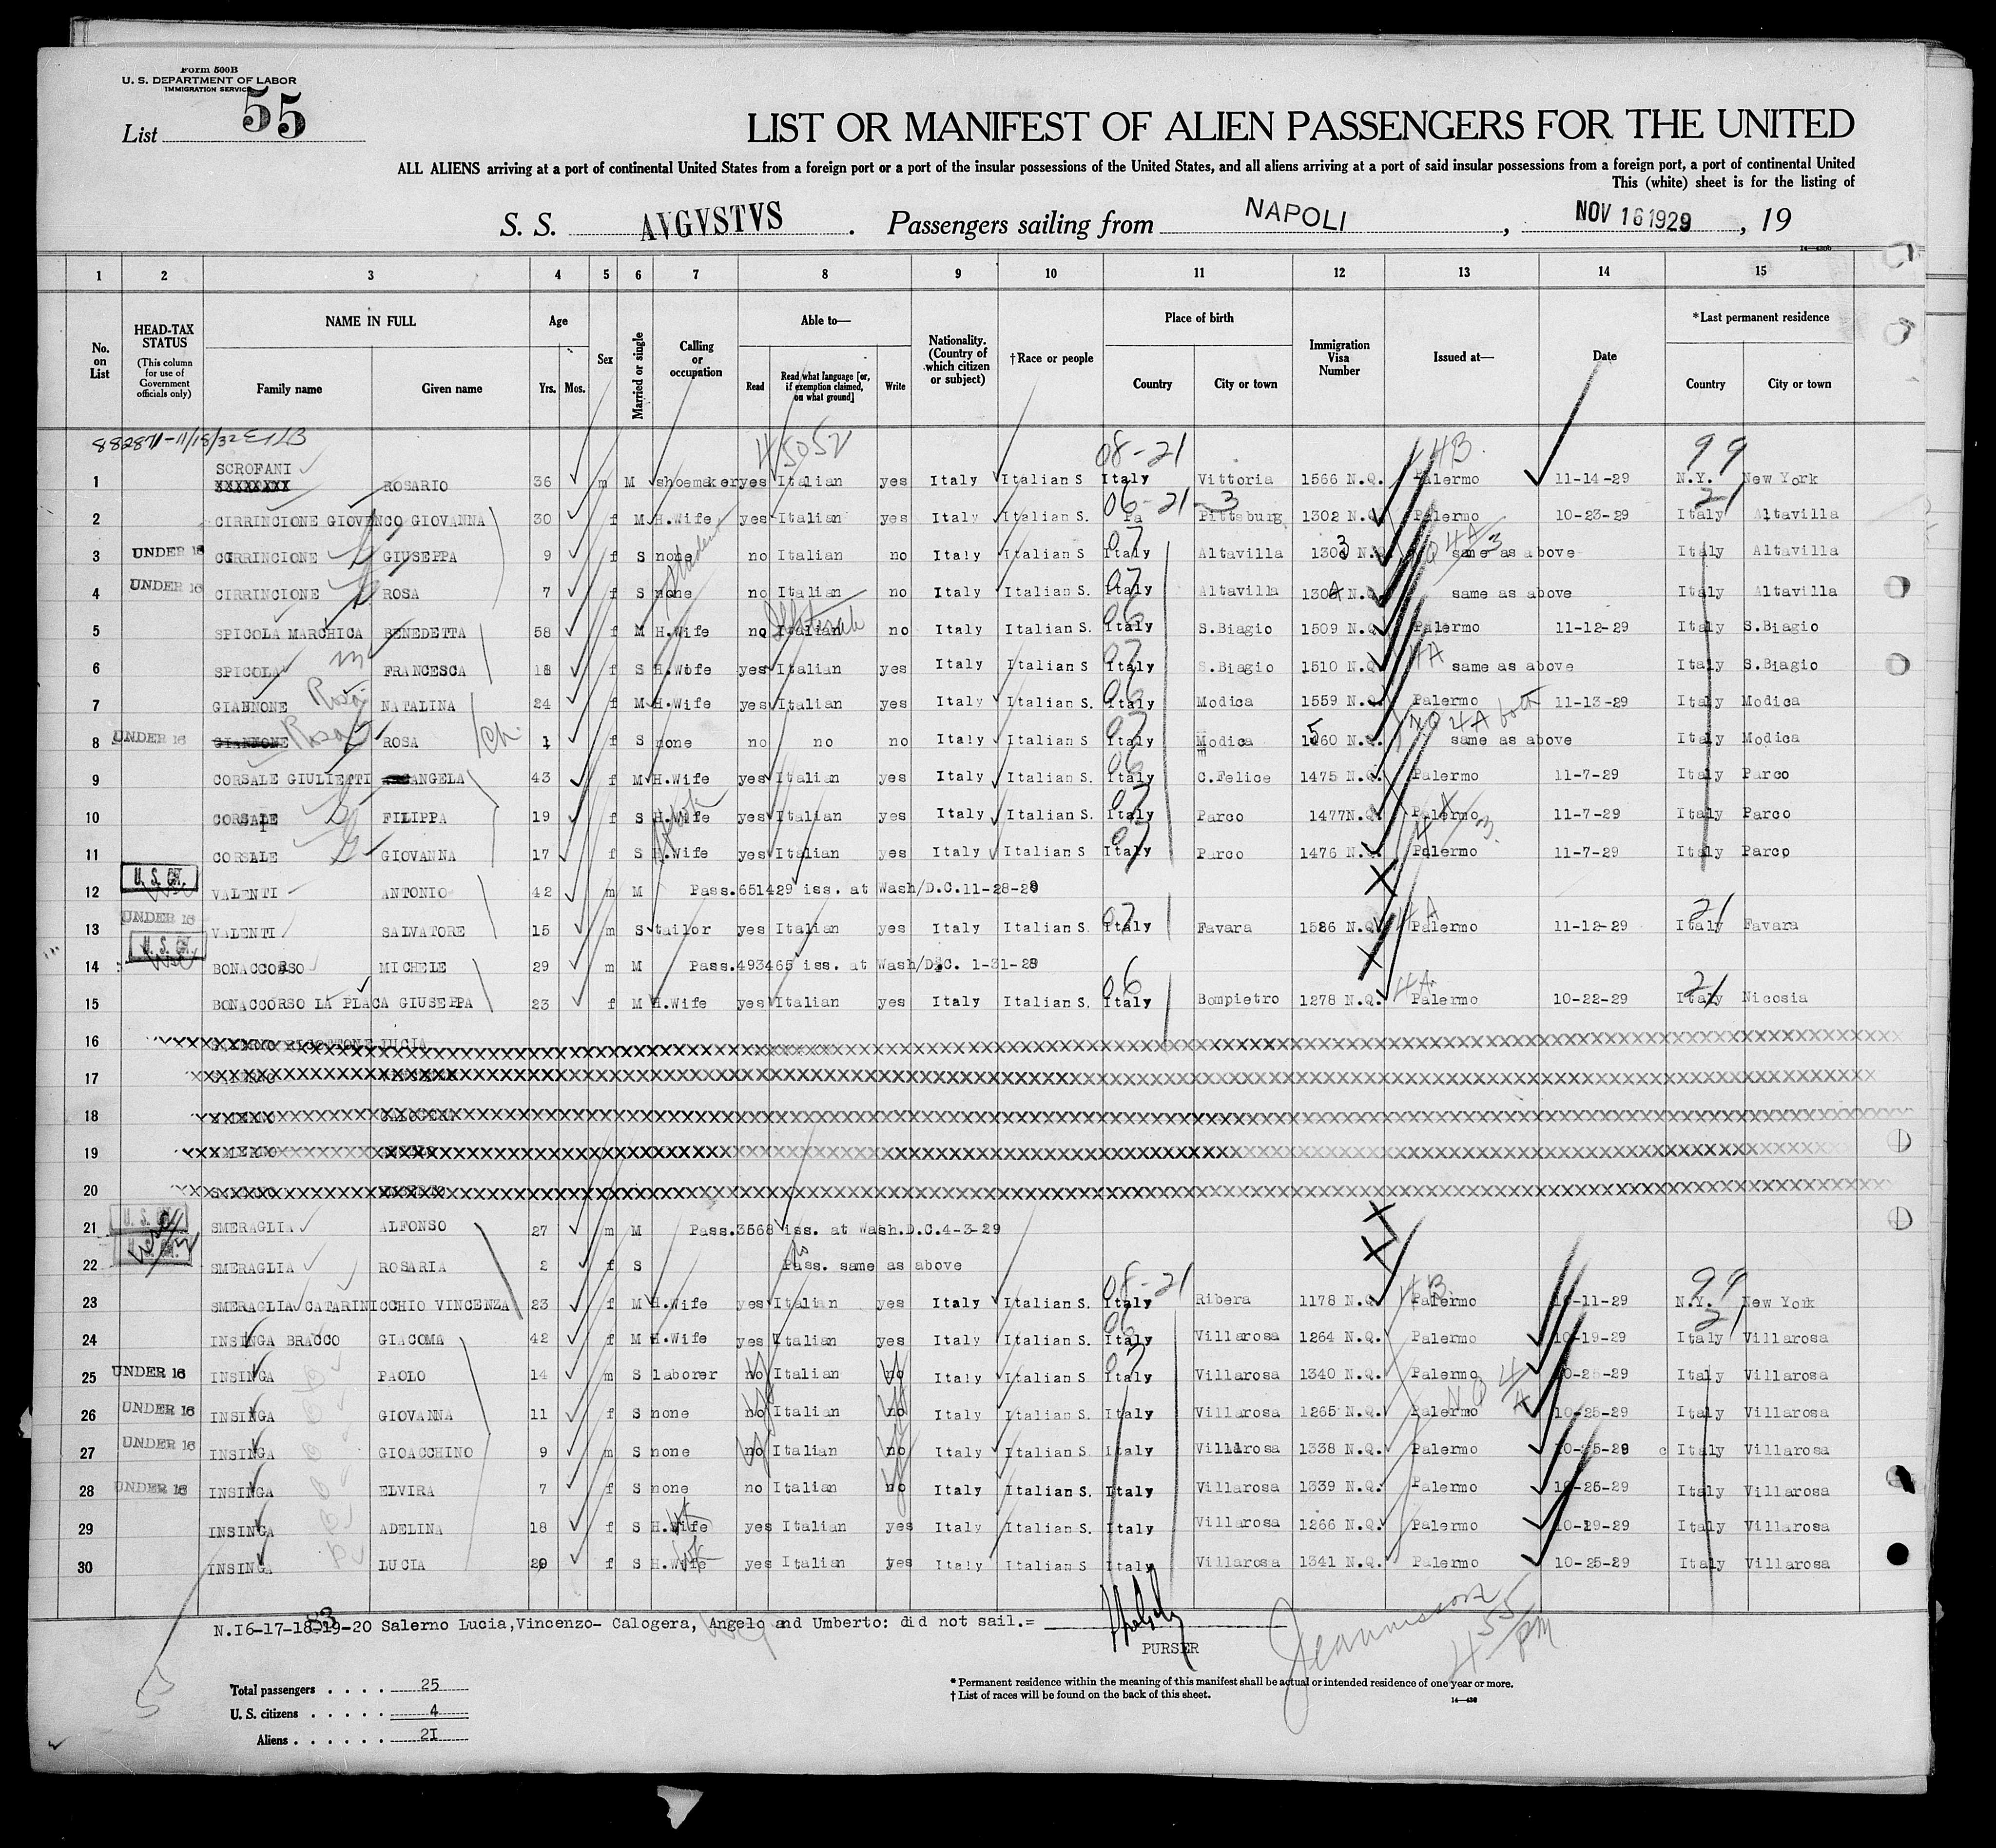 Form 500B
U. S. DEPARTMENT OF LABOR
IMMIGRATION SERVICE
List 55
LIST OR MANIFEST OF ALIEN PASSENGERS FOR THE UNITED
ALL ALIENS arriving at a port of continental United States from a foreign port or a port of the insular possessions of the United States, and all aliens arriving at a port of said insular possessions from a foreign port, a port of continental United
This (white) sheet is for the listing of
S. S. AVGVSTVS . Passengers sailing from NAPOLI , NOV 16 1929 , 19
1 2 3 4 5 6 7 8 9 10 11 12 13 14 15
No. on List
HEAD-TAX STATUS
(This column for use of Government officials only)
NAME IN FULL
Family name Given name
Age
Yrs. Mos.
Sex
Married or single
Calling or occupation
Able to—
Read Read what language [or, if exemption claimed, on what ground] Write
Nationality. (Country of which citizen or subject)
†Race or people
Place of birth
Country City or town
Immigration Visa Number
Issued at—
Date
*Last permanent residence
Country City or town
08-21 14B. 99
1 SCROFANI XXXXXXXX ROSARIO 36 m M shoemaker yes Italian yes Italy Italian S Italy Vittoria 1566 N.Q. Palermo 11-14-29 N.Y. New York
06-21-3 21
2 CIRRINCIONE GIOVENCO GIOVANNA 30 f M H.Wife yes Italian yes Italy Italian S. Pa Pittsburg 1302 N.Q. Palermo 10-23-29 Italy Altavilla
3 UNDER 16 CIRRINCIONE GIUSEPPA 9 f S none no Italian no Italy Italian S Italy Altavilla 1303 N.Q. same as above Italy Altavilla
4 UNDER 16 CIRRINCIONE ROSA 7 f S none no Italian no Italy Italian S. Italy Altavilla 1304 N.Q. same as above Italy Altavilla
5 SPICOLA MARCHICA BENEDETTA 58 f M H.Wife no Italian no Italy Italian S. Italy S.Biagio 1509 N.Q. Palermo 11-12-29 Italy S.Biagio
6 SPICOLA m FRANCESCA 18 f S H.Wife yes Italian yes Italy Italian S Italy S.Biagio 1510 N.Q. same as above Italy S.Biagio
7 GIANNONE Rosa NATALINA 24 f M H.Wife yes Italian yes Italy Italian S. Italy Modica 1559 N.Q. Palermo 11-13-29 Italy Modica
8 UNDER 16 GIANNONE Rosa ROSA 1 f S none no no no Italy Italian S Italy Modica 1560 N.Q. same as above Italy Modica
9 CORSALE GIULIETTI ANGELA 43 f M H.Wife yes Italian yes Italy Italian S. Italy C.Felice 1475 N.Q. Palermo 11-7-29 Italy Parco
10 CORSALE G FILIPPA 19 f S H.Wife yes Italian yes Italy Italian S. Italy Parco 1477N.Q. Palermo 11-7-29 Italy Parco
11 CORSALE G GIOVANNA 17 f S H.Wife yes Italian yes Italy Italian S Italy Parco 1476 N.Q. Palermo 11-7-29 Italy Parco
12 U. S. CIT. VALENTI ANTONIO 42 m M Pass.651429 iss. at Wash/D.C.11-28-28
13 UNDER 16 VALENTI SALVATORE 15 m S tailor yes Italian yes Italy Italian S. Italy Favara 1526 N.Q. Palermo 11-12-29 Italy Favara
14 U. S. CIT. BONACCORSO MICHELE 29 m M Pass.493465 iss. at Wash/D.C. 1-31-28
15 BONACCORSO LA PLACA GIUSEPPA 23 f M H.Wife yes Italian yes Italy Italian S. Italy Bompietro 1278 N.Q. Palermo 10-22-29 Italy Nicosia
16
17
18
19
20
21 U. S. CIT. SMERAGLIA ALFONSO 27 m M Pass.3568 iss. at Wash.D.C.4-3-29
22 U. S. CIT. SMERAGLIA ROSARIA 2 f S Pass. same as above
08-21 99
23 SMERAGLIA CATARINICCHIO VINCENZA 23 f M H.Wife yes Italian yes Italy Italian S. Italy Ribera 1178 N.Q. Palermo 10-11-29 N.Y. New York
24 INSINGA BRACCO GIACOMA 42 f M H.Wife yes Italian yes Italy Italian S. Italy Villarosa 1264 N.Q. Palermo 10-19-29 Italy Villarosa
25 UNDER 16 INSINGA PAOLO 14 m S laborer no Italian no Italy Italian S. Italy Villarosa 1340 N.Q. Palermo 10-25-29 Italy Villarosa
26 UNDER 16 INSINGA GIOVANNA 11 f S none no Italian no Italy Italian S. Italy Villarosa 1265 N.Q. Palermo 10-25-29 Italy Villarosa
27 UNDER 16 INSINGA GIOACCHINO 9 m S none no Italian no Italy Italian S. Italy Villarosa 1338 N.Q. Palermo 10-25-29 Italy Villarosa
28 UNDER 16 INSINGA ELVIRA 7 f S none no Italian no Italy Italian S. Italy Villarosa 1339 N.Q. Palermo 10-25-29 Italy Villarosa
29 INSINGA ADELINA 18 f S H.Wife yes Italian yes Italy Italian S. Italy Villarosa 1266 N.Q. Palermo 10-19-29 Italy Villarosa
30 INSINGA LUCIA 20 f S H.Wife yes Italian yes Italy Italian S Italy Villarosa 1341 N.Q. Palermo 10-25-29 Italy Villarosa
N.16-17-18-19-20 Salerno Lucia,Vincenzo- Calogera, Angelo and Umberto: did not sail.=
PURSER
4 55 pm
Total passengers . . . . 25
U. S. citizens . . . . . 4
Aliens . . . . . . 21
* Permanent residence within the meaning of this manifest shall be actual or intended residence of one year or more.
† List of races will be found on the back of this sheet.